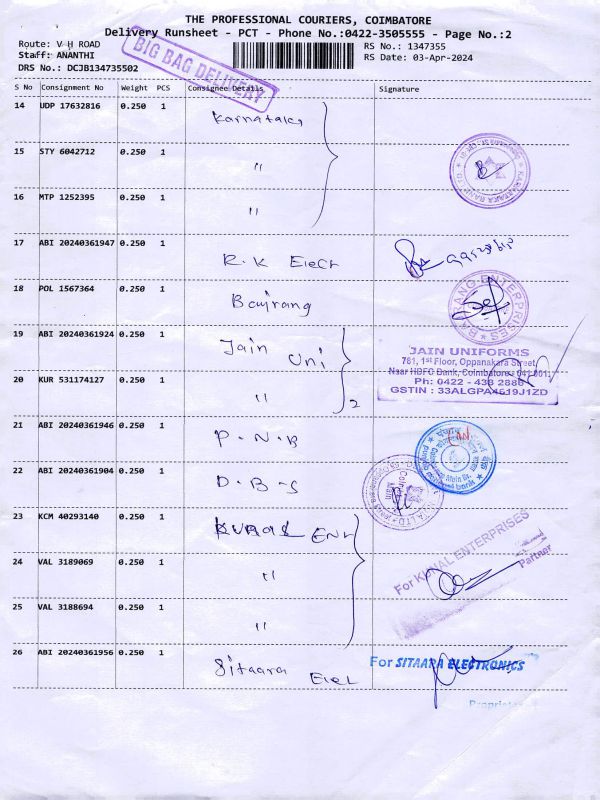 THE PROFESSIONAL COURIERS, COIMBATORE
Delivery Runsheet - PCT - Phone No.:0422-3505555 - Page No.:2
Route: V H ROAD
Staff: ANANTHI
DRS No.: DCJB134735502
RS No.: 1347355
RS Date: 03-Apr-2024
BIG BAG DELIVERY
S No Consignment No Weight PCS Consignee Details Signature
14 UDP 17632816 0.250 1 Karnataka
15 STY 6042712 0.250 1 "
16 MTP 1252395 0.250 1 "
17 ABI 20240361947 0.250 1 R.K Elect
18 POL 1567364 0.250 1 Bajrang
BAJRANG ENTERPRISES
19 ABI 20240361924 0.250 1 Jain Uni
20 KUR 531174127 0.250 1 " 2
JAIN UNIFORMS
781, 1st Floor, Oppanakara Street,
Near HDFC Bank, Coimbatore - 641 001.
Ph: 0422 - 438 2886
GSTIN : 33ALGPA4619J1ZD
21 ABI 20240361946 0.250 1 P.N.B
22 ABI 20240361904 0.250 1 D.B.S
23 KCM 40293140 0.250 1 Kunal Ent
24 VAL 3189069 0.250 1 "
25 VAL 3188694 0.250 1 "
For KUNAL ENTERPRISES
Partner
26 ABI 20240361956 0.250 1 Sitaara Elel
For SITAARA ELECTRONICS
Proprietor